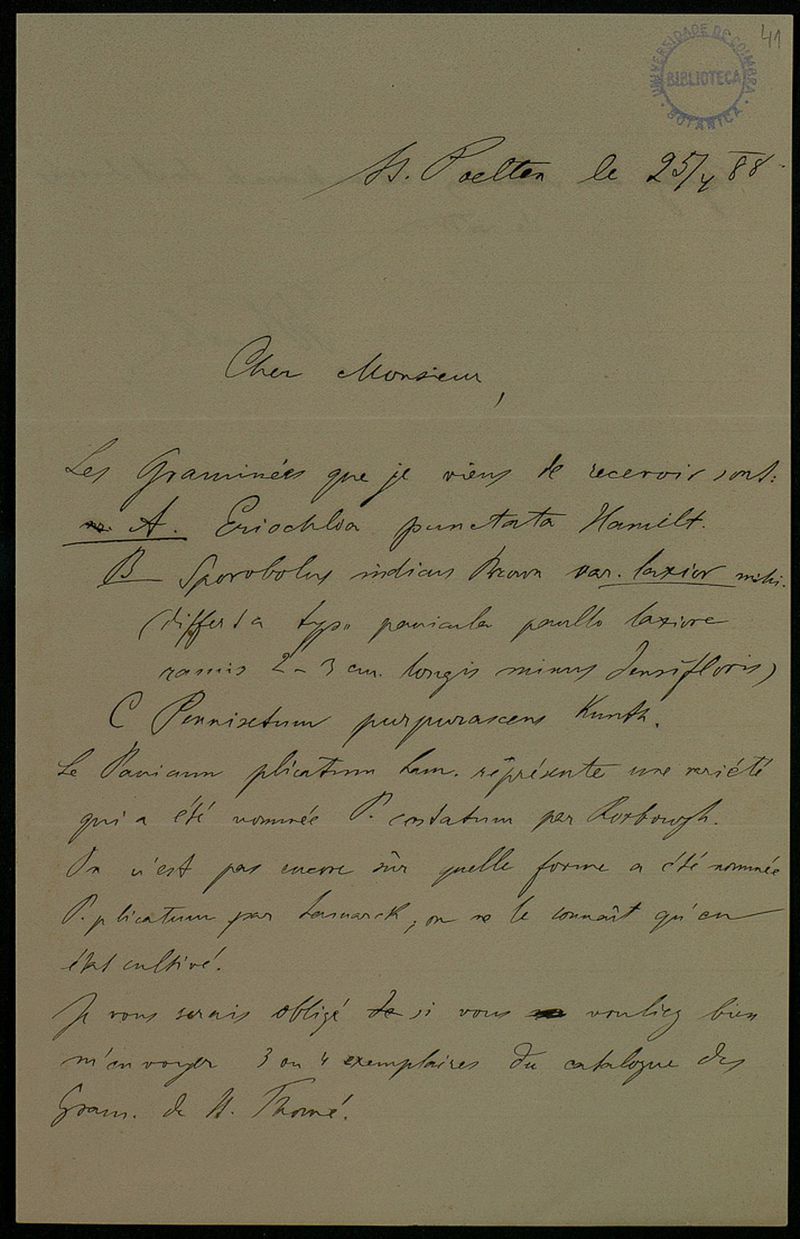 41
UNIVERSIDADE DE COIMBRA
BIBLIOTECA
BOTANICA
St. Poelten le 25/ 88
Cher Monsieur,
Les Graminées que je viens de recevoir sont:
A. Eriochloa punctata Hamilt.
B Sporobolus indicus Brown var. laxior mihi.
(differt a typo panicula paullo laxiore
ramis 2-3 cm. longis minus densifloris)
C Pennisetum purpurascens Kunth.
Le Panicum plicatum Lam. représente une variété
qui a été nommée P. costatum par Roxbourgh.
On n'est pas encore sûr quelle forme a été nommée
P. plicatum par Lamarck, on ne le connaît qu'en
état cultivé.
Je vous serais obligé de si vous vouliez bien
m'envoyer 3 ou 4 exemplaires du catalogue des
Gram. de St. Thomé.